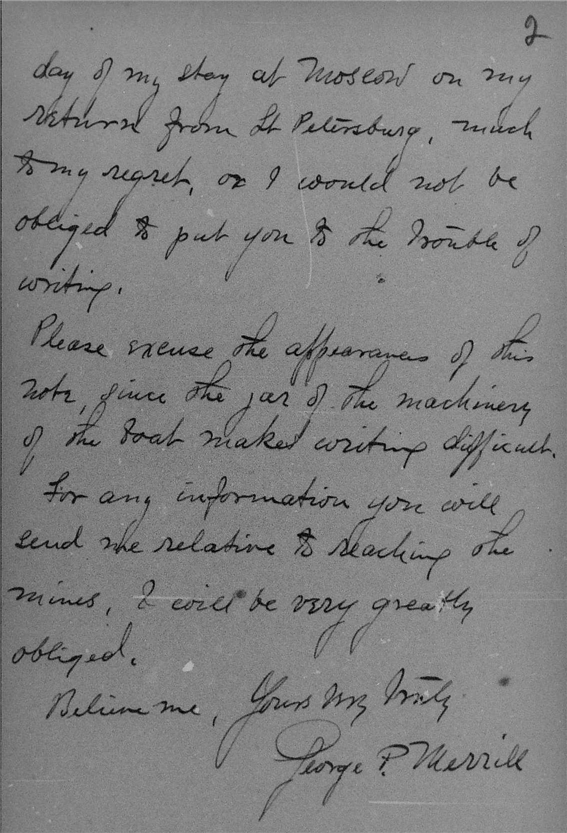 2
day of my stay at Moscow on my
return from St Petersburg, much
to my regret, or I would not be
obliged to put you to the trouble of
writing.
Please excuse the appearances of this
note, since the jar of the machinery
of the boat makes writing difficult.
For any information you will
send me relative to reaching the
mines, I will be very greatly
obliged.
Believe me, Yours very truly
George P. Merrill